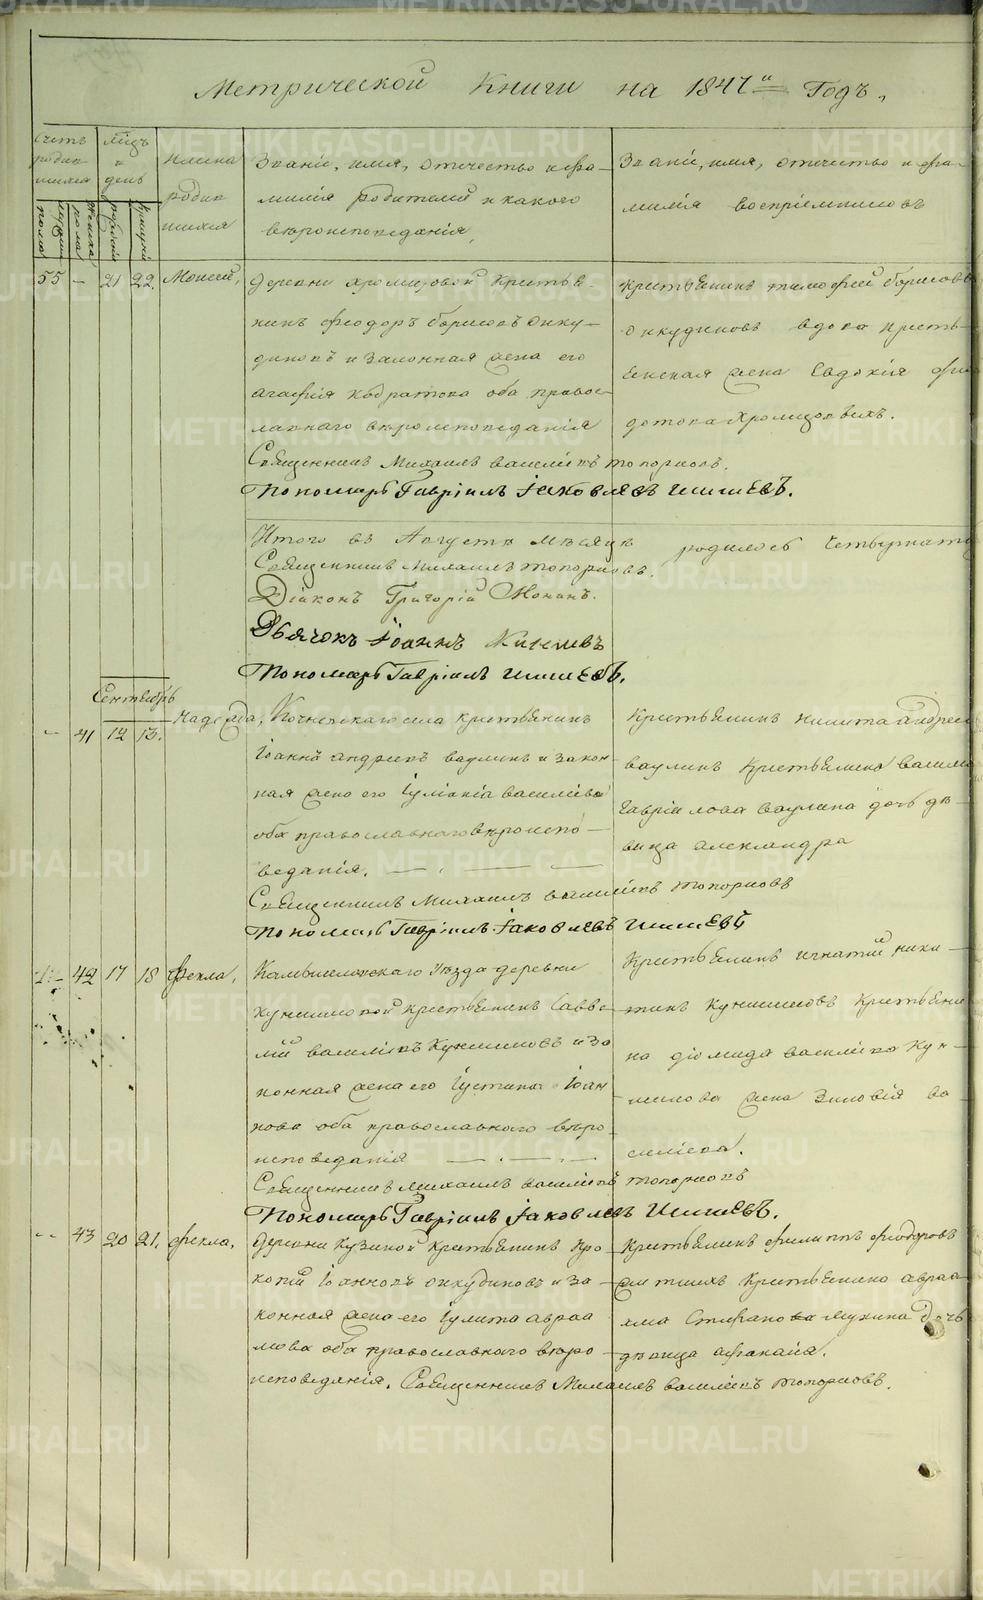 Метрической Книги на 1847й Годъ,
Счетъ родившихся
Мужеска пола
Женска пола
Мѣсяцъ и день
рожденія
крещенія
Имена родившихся
Званіе, имя, отчество и фамилія родителей и какого вѣроисповеданія,
Званіе, имя, отчество и фамилія воспріемниковъ
55 - 21 22. Моисей,
Деревни Хромцовой Крестья-
нинъ Феодоръ Борисовъ Онку-
диновъ и Законная жена его
Агафія Кодратова оба право-
славнаго вѣроисповеданія
Крестьянинъ Тимофей Борисовъ
Онкудиновъ вдова кресть-
янская жена Евдокія Фи
дотова Хромцовыхъ.
Священникъ Михаилъ Васильевъ Топорковъ.
Пономарь Гавріилъ Іаковлевъ Шишевъ.
Итого въ Августѣ мѣсяцѣ родилось Четырнать
Священникъ Михаилъ Топорковъ.
Діаконъ Григорій
Дьячокъ Іоаннъ
Пономарь Гавріилъ Шишевъ.
Сентябрь
- 41 12 13. Надежда,
села Крестьянинъ
Іоаннъ Андреевъ Ваулинъ и Закон-
ная жена его Іуліанія Васильева
оба православнаго вѣроиспо-
веданія.
Крестьянинъ Никита Андреев
Ваулинъ Крестьянина Васил
Гаврилова Ваулина дочь дѣ-
вица Александра
Священникъ Михаилъ Васильевъ Топорковъ
Пономарь Гавріилъ Іаковлевъ Шишевъ
42 17 18 Фекла,
Камышловскаго Уѣзда деревни
Крестьянинъ Савва-
тій Васильевъ и За
конная жена его Іустина Іоан
нова оба православнаго вѣро
исповеданія
Крестьянинъ Игнатій Ники-
тинъ Крестьяни
на Діомида Васильева Кун-
жена Зиновія Ва
сильева.
Священникъ Михаилъ Васильевъ Топорковъ
Пономарь Гавріилъ Іаковлевъ Шишевъ.
-- 43 20 21. Фекла,
Деревни Кузиной Крестьянинъ Про
копій Іоанновъ Онкудиновъ и За
конная жена его Іулита Авраа
мова оба православнаго вѣро
исповеданія. Священникъ Михаилъ Васильевъ Топорковъ.
Крестьянинъ Филиппъ Феодоровъ
Крестьянина Авраа-
ма Стефанова Мухина дочь
дѣвица Афанасія.